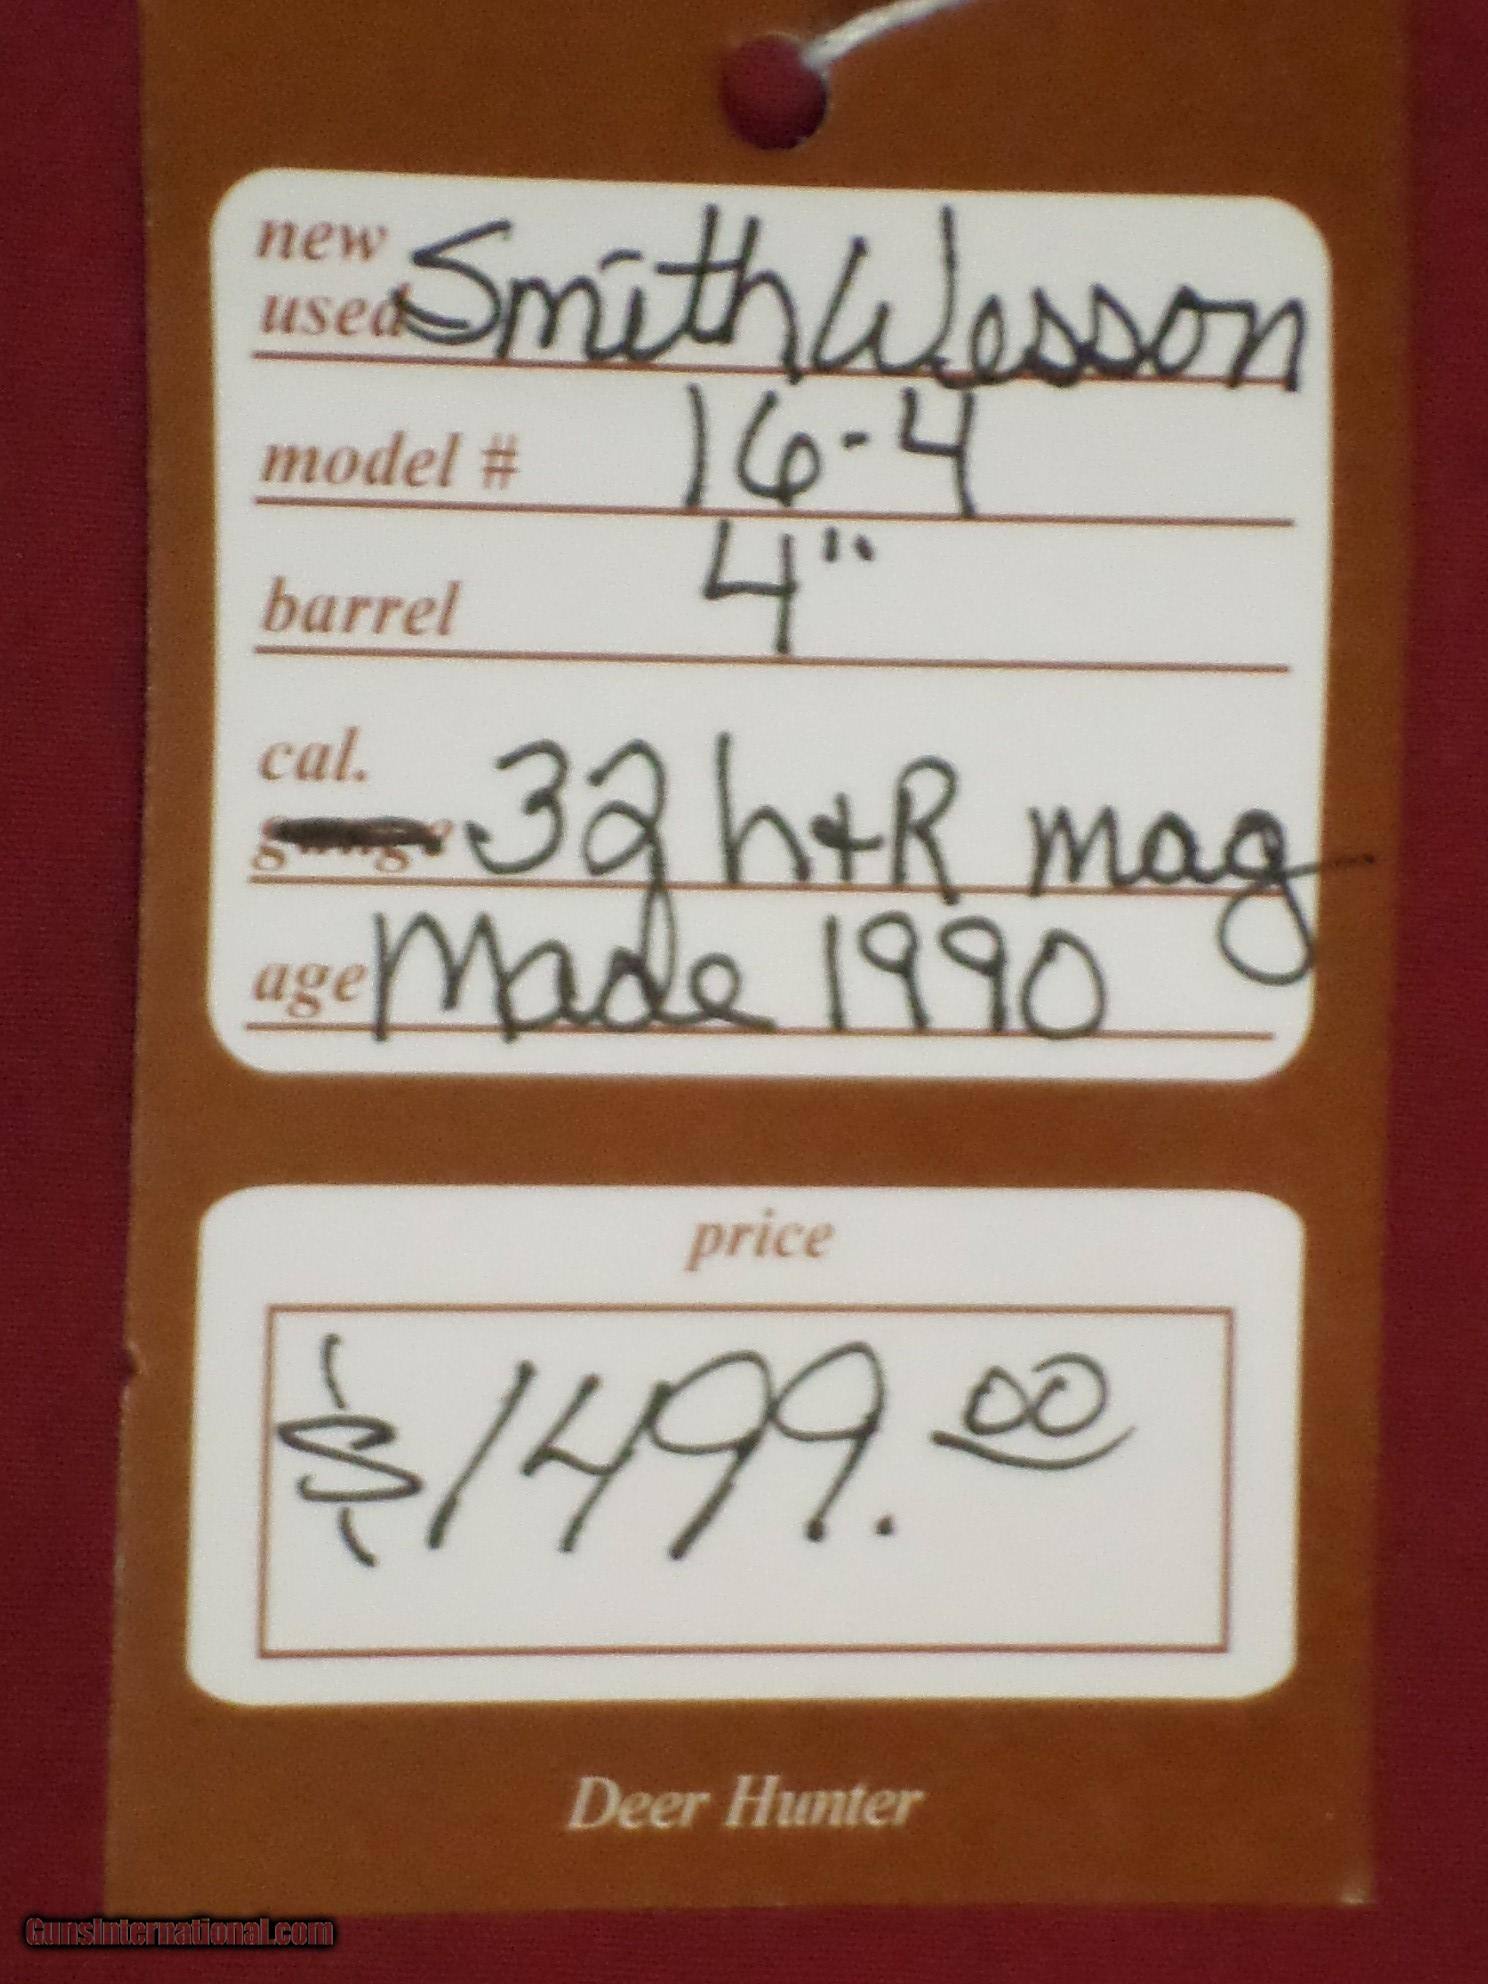 new
used Smith Wesson
model # 16-4
barrel 4"
cal.
gauge .32 h+R mag
age Made 1990
price
$1499.00
Deer Hunter
GunsInternational.com